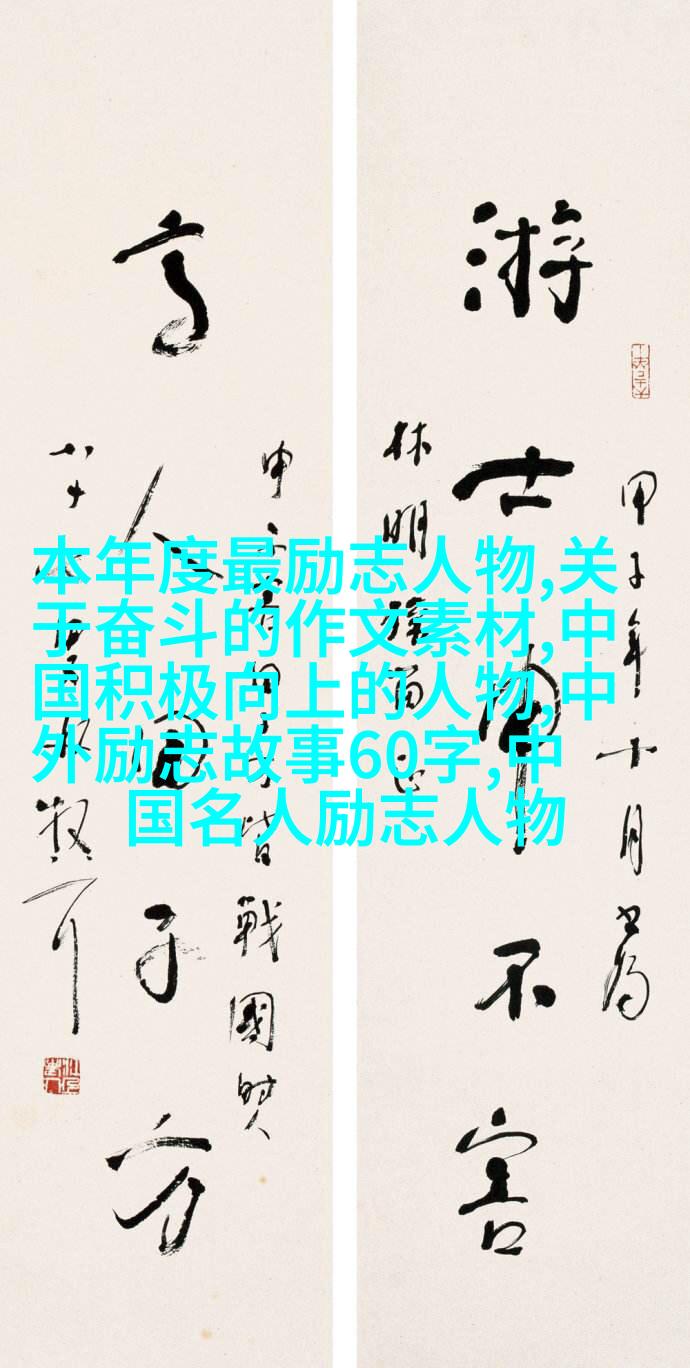 本年度最励志人物,关
于奋斗的作文素材,中
国积极向上的人物,中
外励志故事60字,中
国名人励志人物
甲子年十月書為
游士申不害
林明
高人田子方
戰國時人